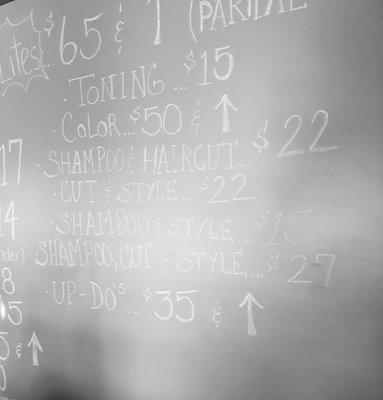 Lites! $65 & ↑ (PARTIAL
· TONING... $15
· COLOR... $50 & ↑
17 · SHAMPOO & HAIRCUT... $22
· CUT & STYLE... $22
14 · SHAMPOO & STYLE... $15
· SHAMPOO, CUT & STYLE... $27
8 · UP-DO'S... $35 & ↑
& ↑